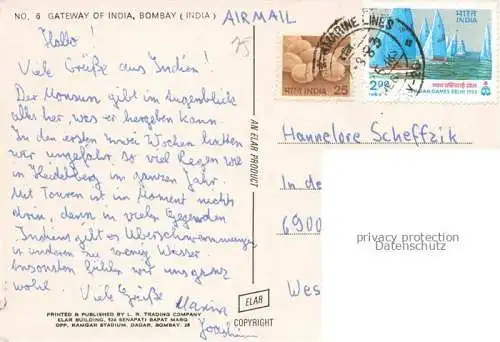 NO. 6 GATEWAY OF INDIA, BOMBAY (INDIA)
AIRMAIL
Hallo!
Viele Grüße aus Indien!
Der Monsun gibt im Augenblick
alles her, was er hergeben kann.
In den ersten zwei Wochen hatten
wir ungefähr so viel Regen wie
in Heidelberg im ganzen Jahr.
Mit Touren ist im Moment nichts
drin, denn in vielen Gegenden
Indiens gibt es Überschwemmungen
in anderen zu wenig Wasser.
Ansonsten fühlen wir uns ganz
wohl.
Viele Grüße
Marina
Joachim
PRINTED & PUBLISHED BY L. R. TRADING COMPANY
ELAR BUILDING, 924 SENAPATI BAPAT MARG
OPP. KAMGAR STADIUM, DADAR, BOMBAY. 28
AN ELAR PRODUCT
ELAR
COPYRIGHT
75
MARINE LINES
भारत INDIA 25
भारत
INDIA
ASIAN GAMES DELHI 1982
Hannelore Scheffzik
In de
6900
Wes
privacy protection
Datenschutz